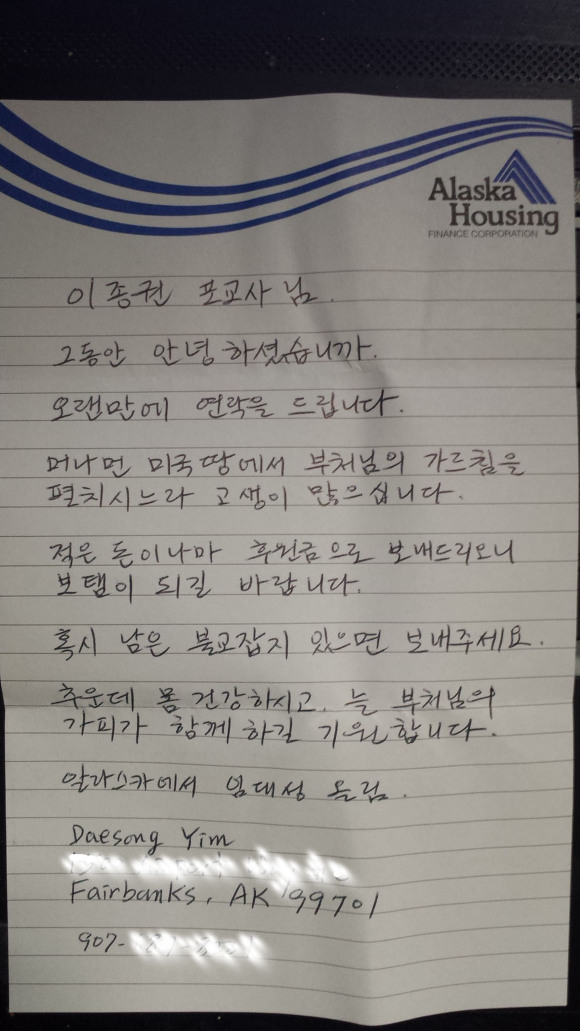 Alaska
Housing
FINANCE CORPORATION
이종권 포교사님.
그동안 안녕하셨습니까.
오랜만에 연락을 드립니다.
머나먼 미국땅에서 부처님의 가르침을
펼치시느라 고생이 많으십니다.
적은 돈이나마 후원금으로 보내드리오니
보탬이 되길 바랍니다.
혹시 남은 불교잡지 있으면 보내주세요.
추운데 몸 건강하시고. 늘 부처님의
가피가 함께하길 기원합니다.
알라스카에서 임대성 올림.
Daesong Yim
Fairbanks, AK 99701
907-